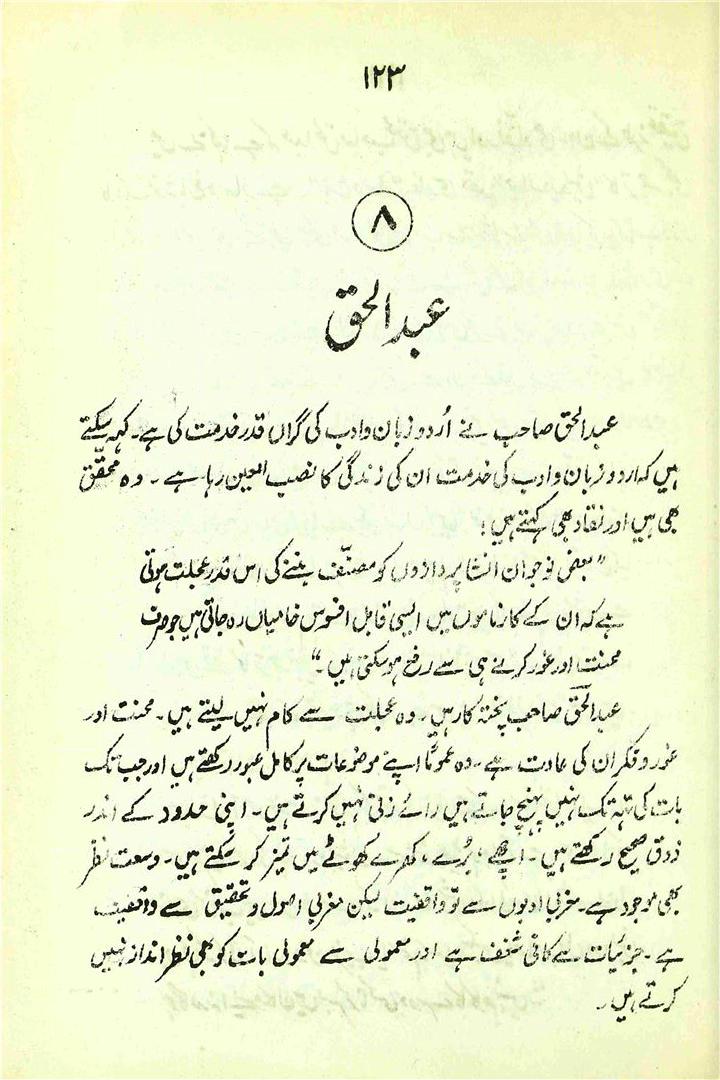 ۱۲۳
۸
عبدالحق
عبدالحق صاحب نے اُردو زبان و ادب کی گراں قدر خدمت کی ہے۔ کہہ سکتے
ہیں کہ اردو زبان و ادب کی خدمت ان کی زندگی کا نصب العین رہا ہے۔ وہ محقّق
بھی ہیں اور نقاد بھی کہتے ہیں:
"بعض نوجوان انشا پردازوں کو مصنّف بننے کی اس قدر عجلت ہوتی
ہے کہ ان کے کارناموں میں ایسی قابل افسوس خامیاں رہ جاتی ہیں جو صرف
محنت اور غور کرنے ہی سے رفع ہو سکتی ہیں۔"
عبدالحق صاحب پختہ کار ہیں۔ وہ عجلت سے کام نہیں لیتے ہیں۔ محنت اور
غور و فکر ان کی عادت ہے۔ وہ عموماً اپنے موضوعات پر کامل عبور رکھتے ہیں اور جب تک
بات کی تہہ تک نہیں پہنچ جاتے ہیں رائے زنی نہیں کرتے ہیں۔ اپنی حدود کے اندر
ذوق صحیح رکھتے ہیں۔ اچھے، بُرے، کھرے کھوٹے میں تمیز کر سکتے ہیں۔ وسعت نظر
بھی موجود ہے۔ مغربی ادبوں سے تو واقفیت لیکن مغربی اصول و تحقیق سے واقفیت
ہے۔ جزئیات سے کافی شغف ہے اور معمولی سے معمولی بات کو بھی نظر انداز نہیں
کرتے ہیں۔